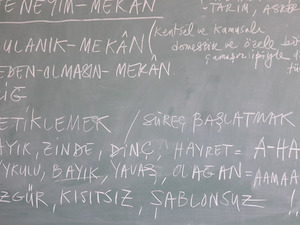 DENEYİM-MEKÂN
-TARIM, ASKER
BULANIK-MEKÂN (kentsel ve kamusala
domestik ve özele
çamaşır ipiyle
BEDEN-ALMAŞIN-MEKÂN
TETİKLEMEK / SÜREÇ BAŞLATMAK
AYIK, ZİNDE, DİNÇ, HAYRET= A-HA
UYKULU, BAYIK, YAVAŞ, OLAĞAN= AAMAA
ÖZGÜR, KISITSIZ, ŞABLONSUZ !